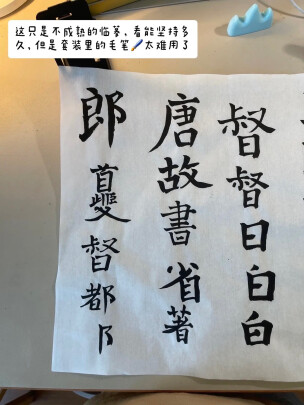 这只是不成熟的临摹，看能坚持多
久，但是套装里的毛笔🖌️太难用了
督督日白白
唐故書省著
郎夔督都卩